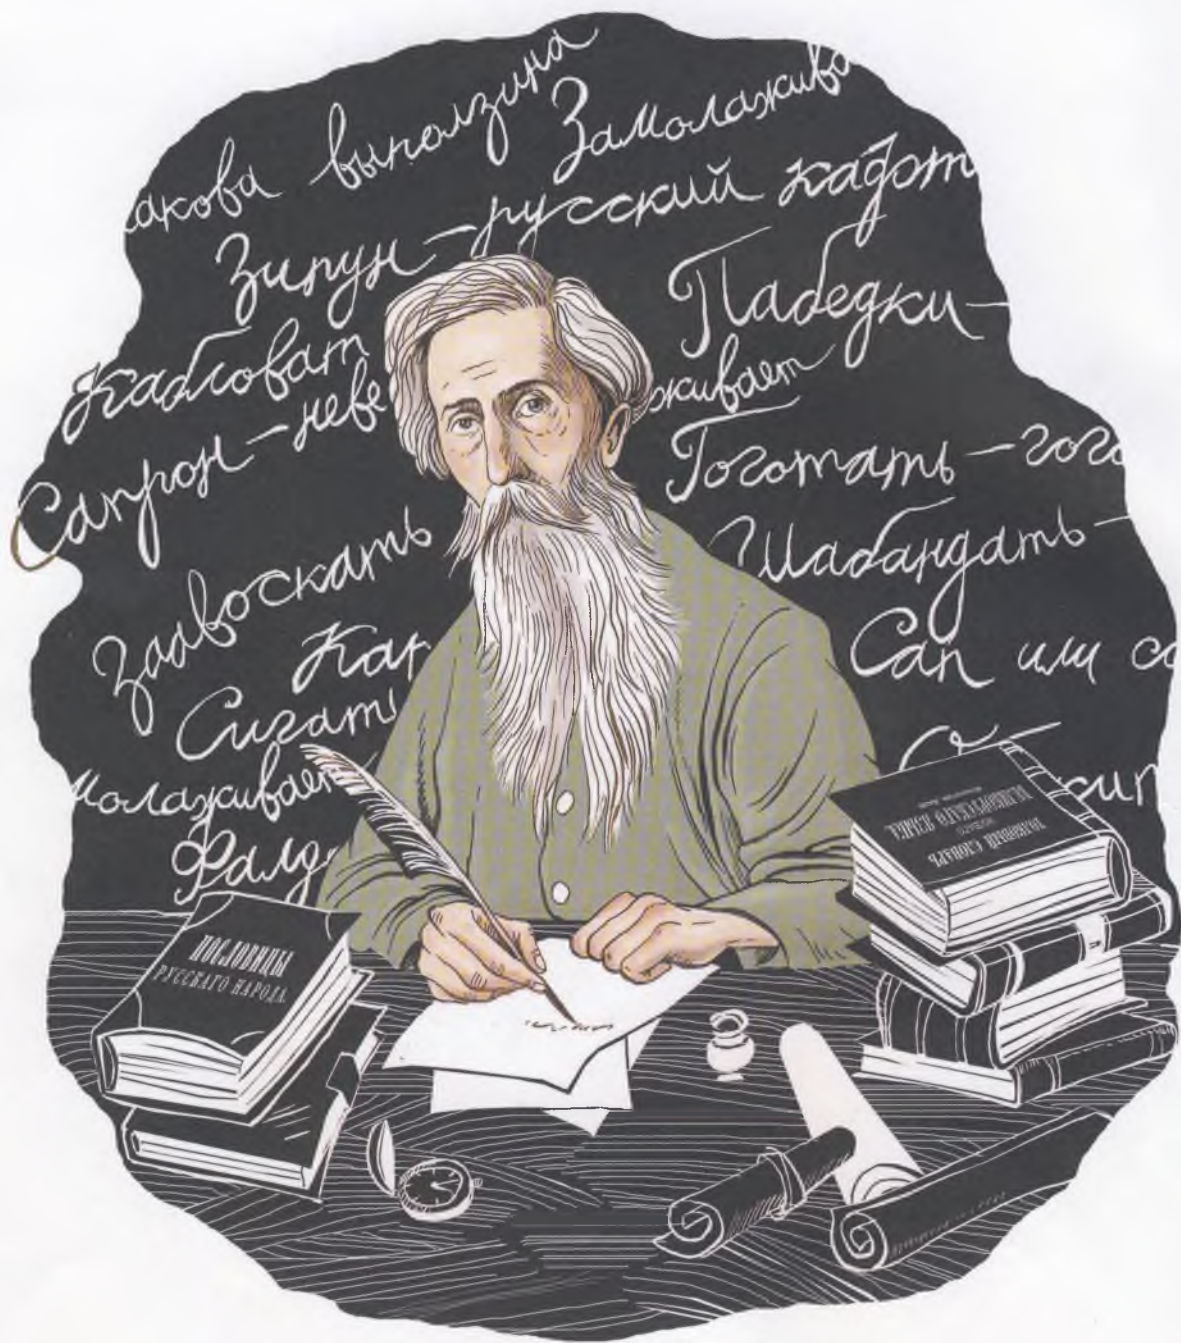 акова выползина
Замолажива
Зипун – русский кафтан
Каблова
Пабедки –
Сапрон – неве
живает
Гоготать – гого
Заавоскать
Шабандать –
Кар
Сап или са
Сигать
молаживает
Фалд
ПОСЛОВИЦЫ
РУССКАГО НАРОДА.
ТОЛКОВЫЙ СЛОВАРЬ
ЖИВАГО
ВЕЛИКОРУССКАГО ЯЗЫКА